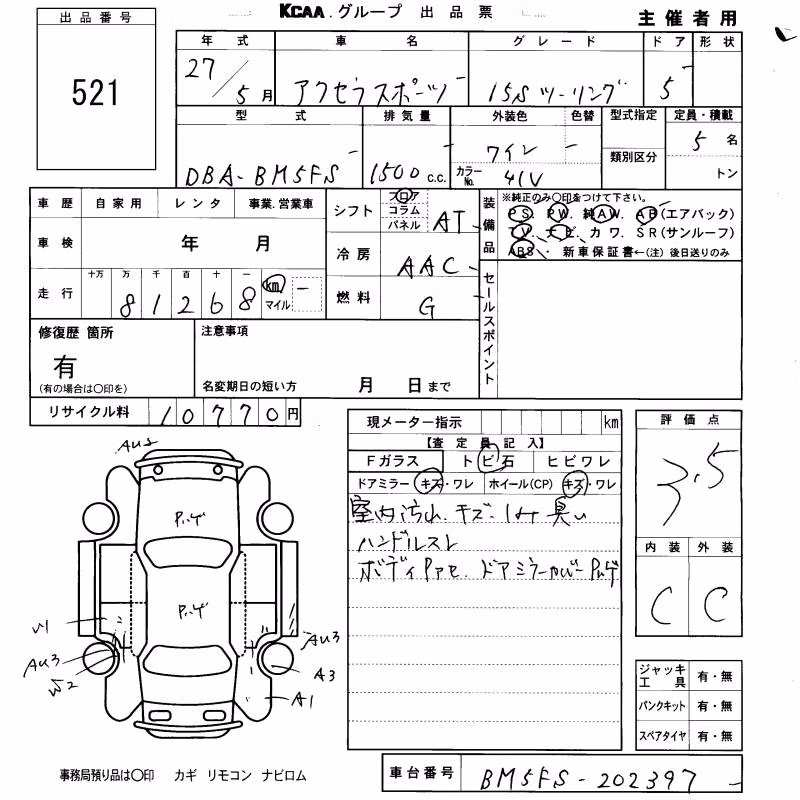 KCAA.グループ 出品票
主催者用
出品番号
521
年式 車名 グレード ドア 形状
27/5月 アクセラスポーツ 15S ツーリング 5
型式 排気量 外装色 色替 型式指定 定員・積載
DBA-BM5FS 1500 c.c. ワイン - 類別区分 5名
カラーNo. 41V トン
車歴 自家用 レンタ 事業.営業車
車検 年 月
走行 十万 万 千 百 十 一
81268 km マイル
シフト フロア コラム パネル AT
冷房 AAC
燃料 G
装備品
※純正のみ○印をつけて下さい。
PS. PW. 純AW. AB(エアバック)
TV. ナビ. カワ. SR(サンルーフ)
ABS. 新車保証書←(注)後日送りのみ
セールスポイント
修復歴 箇所
有
(有の場合は○印を)
注意事項
名変期日の短い方 月 日まで
リサイクル料 10770円
現メーター指示 km
【査定員記入】
Fガラス トビ石 ヒビワレ
ドアミラー キズ・ワレ ホイール(CP) キズ・ワレ
室内汚れ.キズ.
臭い
ハンドルスレ
ボディ
ドアミラーカバー
評価点
3.5
内装 外装
C C
AU3
W1
AU3
W2
AU3
A3
A1
ジャッキ工具 有・無
パンクキット 有・無
スペアタイヤ 有・無
事務局預り品は○印 カギ リモコン ナビロム
車台番号 BM5FS-202397